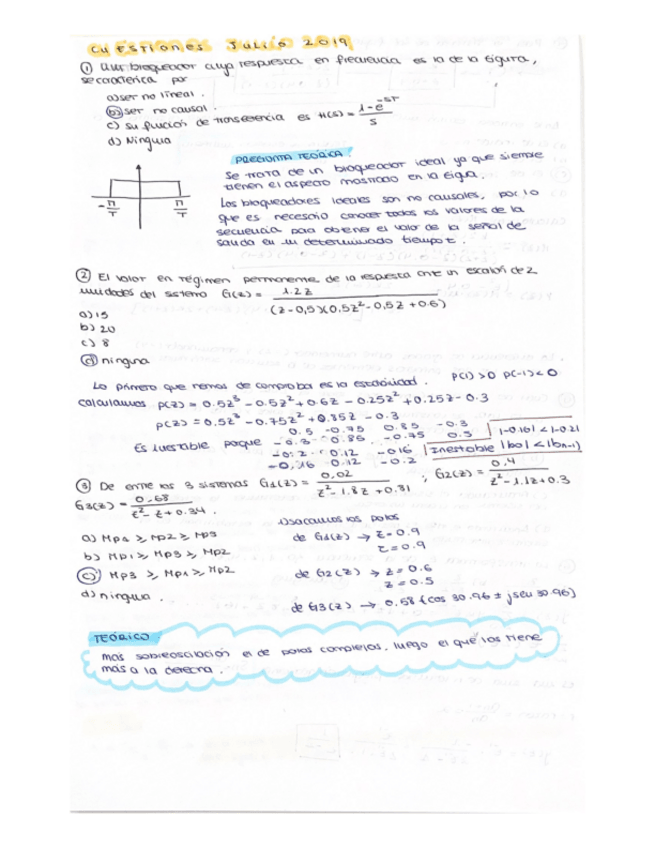 CUESTIONES JULIO 2019
① Un bloqueador cuya respuesta en frecuencia es la de la figura,
se caracteriza por
a) ser no lineal.
b) ser no causal.
c) su función de transferencia es H(s) = (1-e^-sT)/s
d) Ninguna
PREGUNTA TEÓRICA:
Se trata de un bloqueador ideal ya que siempre
tienen el aspecto mostrado en la figura.
Los bloqueadores ideales son no causales, por lo
que es necesario conocer todos los valores de la
secuencia para obtener el valor de la señal de
salida en un determinado tiempo t.
-π/T π/T
② El valor en régimen permanente de la respuesta ante un escalón de 2
unidades del sistema G(z) = 1.2z / (z-0,5)(0,5z²-0,5z+0.6)
a) 15
b) 20
c) 8
d) ninguna
Lo primero que hemos de comprobar es la estabilidad. P(1)>0 P(-1)<0
Calculamos P(z) = 0.5z³ - 0.5z² + 0.6z - 0.25z² + 0.25z - 0.3
P(z) = 0.5z³ - 0.75z² + 0.85z - 0.3
0.5 -0.75 0.85 -0.3
Es inestable porque -0.3 0.85 -0.75 0.5 |-0.16| < |-0.2|
-0.2 0.12 -0.16 Inestable |b0| < |bn-1|
-0.16 0.12 -0.2
③ De entre los 3 sistemas G1(z) = 0,02 / z²-1.8z+0.81 ; G2(z) = 0.4 / z²-1.1z+0.3
G3(z) = 0,68 / z²-z+0.34 .
a) Mp1 ≥ Mp2 ≥ Mp3
b) Mp1 ≥ Mp3 ≥ Mp2
c) Mp3 ≥ Mp1 ≥ Mp2
d) ninguna.
1) sacamos los polos
de G1(z) → z=0.9
z=0.9
de G2(z) → z=0.6
z=0.5
de G3(z) → 0.58 {cos 30.96 ± j sen 30.96}
TEÓRICO:
más sobreoscilación el de polos complejos, luego el que los tiene
más a la derecha.